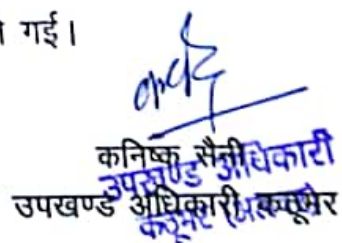 गई।
कनिष्क सैनी
उपखण्ड अधिकारी
उपखण्ड अधिकारी, कठूमर
कठूमर